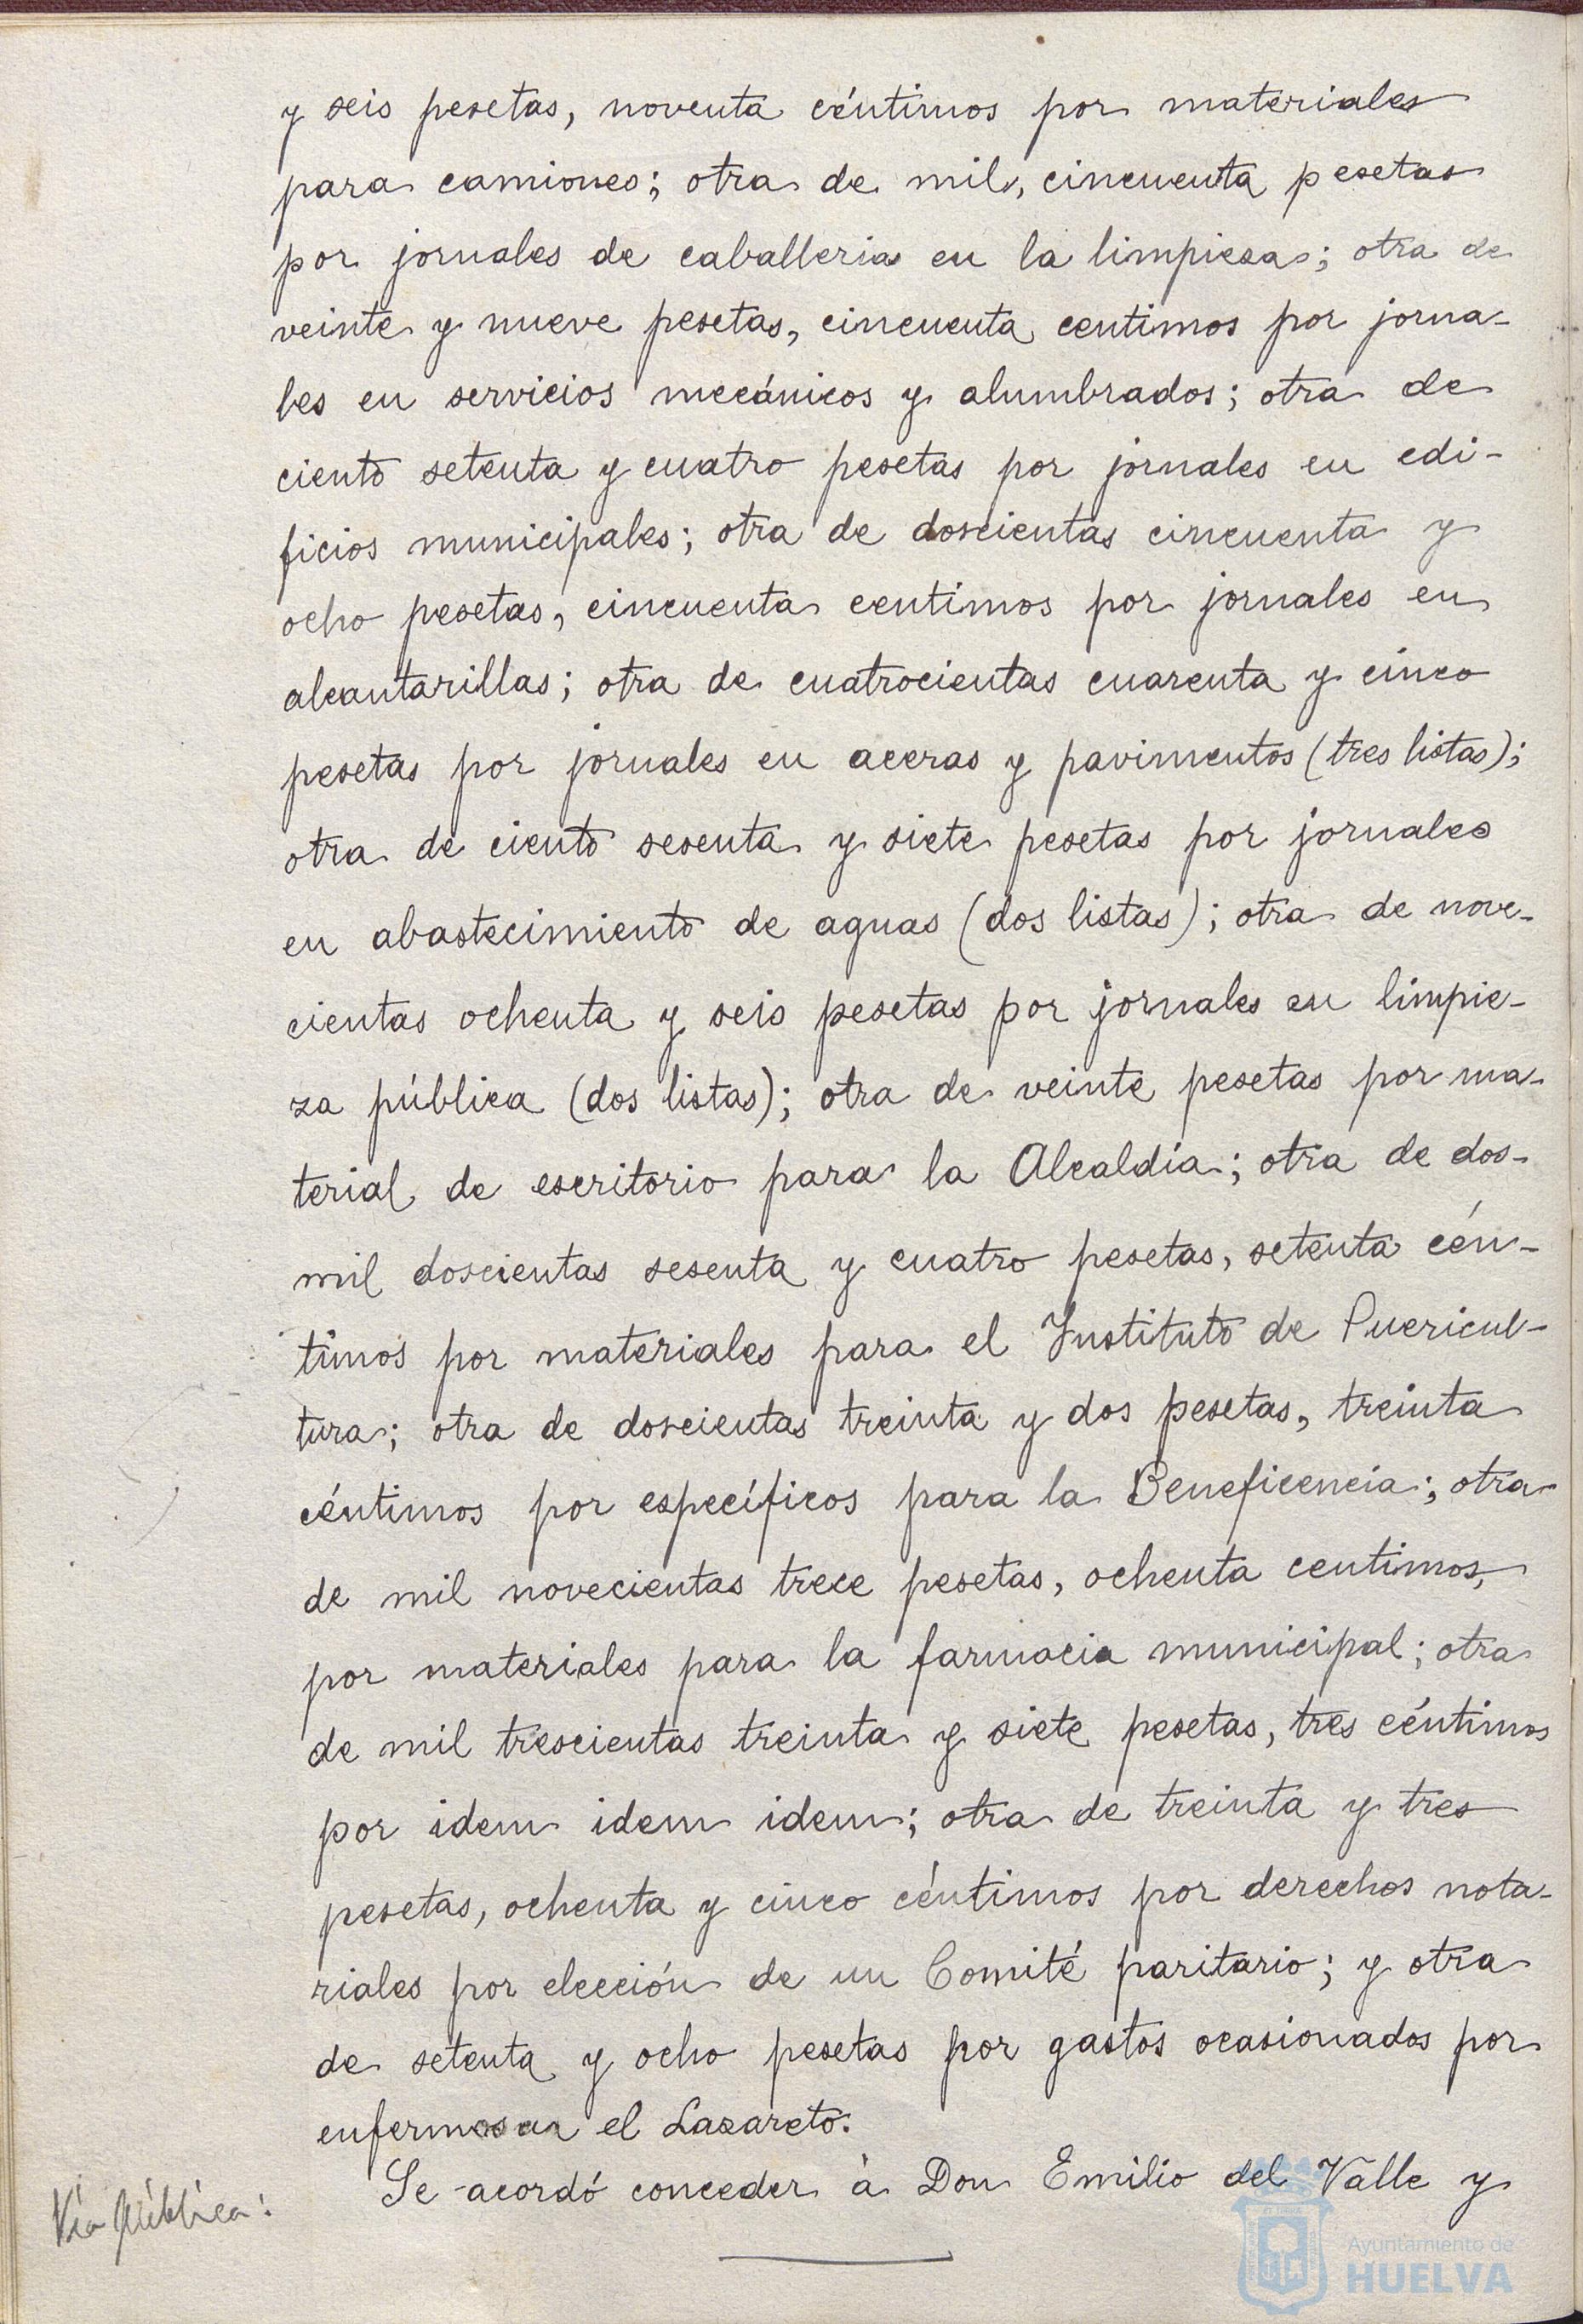 y seis pesetas, noventa céntimos por materiales
para camiones; otra de mil, cincuenta pesetas
por jornales de caballerias en la limpieza; otra de
veinte y nueve pesetas, cincuenta centimos por jorna-
les en servicios mecánicos y alumbrados; otra de
ciento setenta y cuatro pesetas por jornales en edi-
ficios municipales; otra de doscientas cincuenta y
ocho pesetas, cincuenta centimos por jornales en
alcantarillas; otra de cuatrocientas cuarenta y cinco
pesetas por jornales en aceras y pavimentos (tres listas);
otra de ciento sesenta y siete pesetas por jornales
en abastecimiento de aguas (dos listas); otra de nove-
cientas ochenta y seis pesetas por jornales en limpie-
za pública (dos listas); otra de veinte pesetas por ma-
terial de escritorio para la Alcaldía; otra de dos-
mil doscientas sesenta y cuatro pesetas, setenta cén-
timos por materiales para el Instituto de Puericul-
tura; otra de doscientas treinta y dos pesetas, treinta
céntimos por específicos para la Beneficencia; otra
de mil novecientas trece pesetas, ochenta centimos,
por materiales para la farmacia municipal; otra
de mil trescientas treinta y siete pesetas, tres céntimos
por idem idem idem; otra de treinta y tres
pesetas, ochenta y cinco céntimos por derechos nota-
riales por elección de un Comité paritario; y otra
de setenta y ocho pesetas por gastos ocasionados por
enfermos en el Lazareto.
Via Pública:
Se acordó conceder à Don Emilio del Valle y
Ayuntamiento de
HUELVA